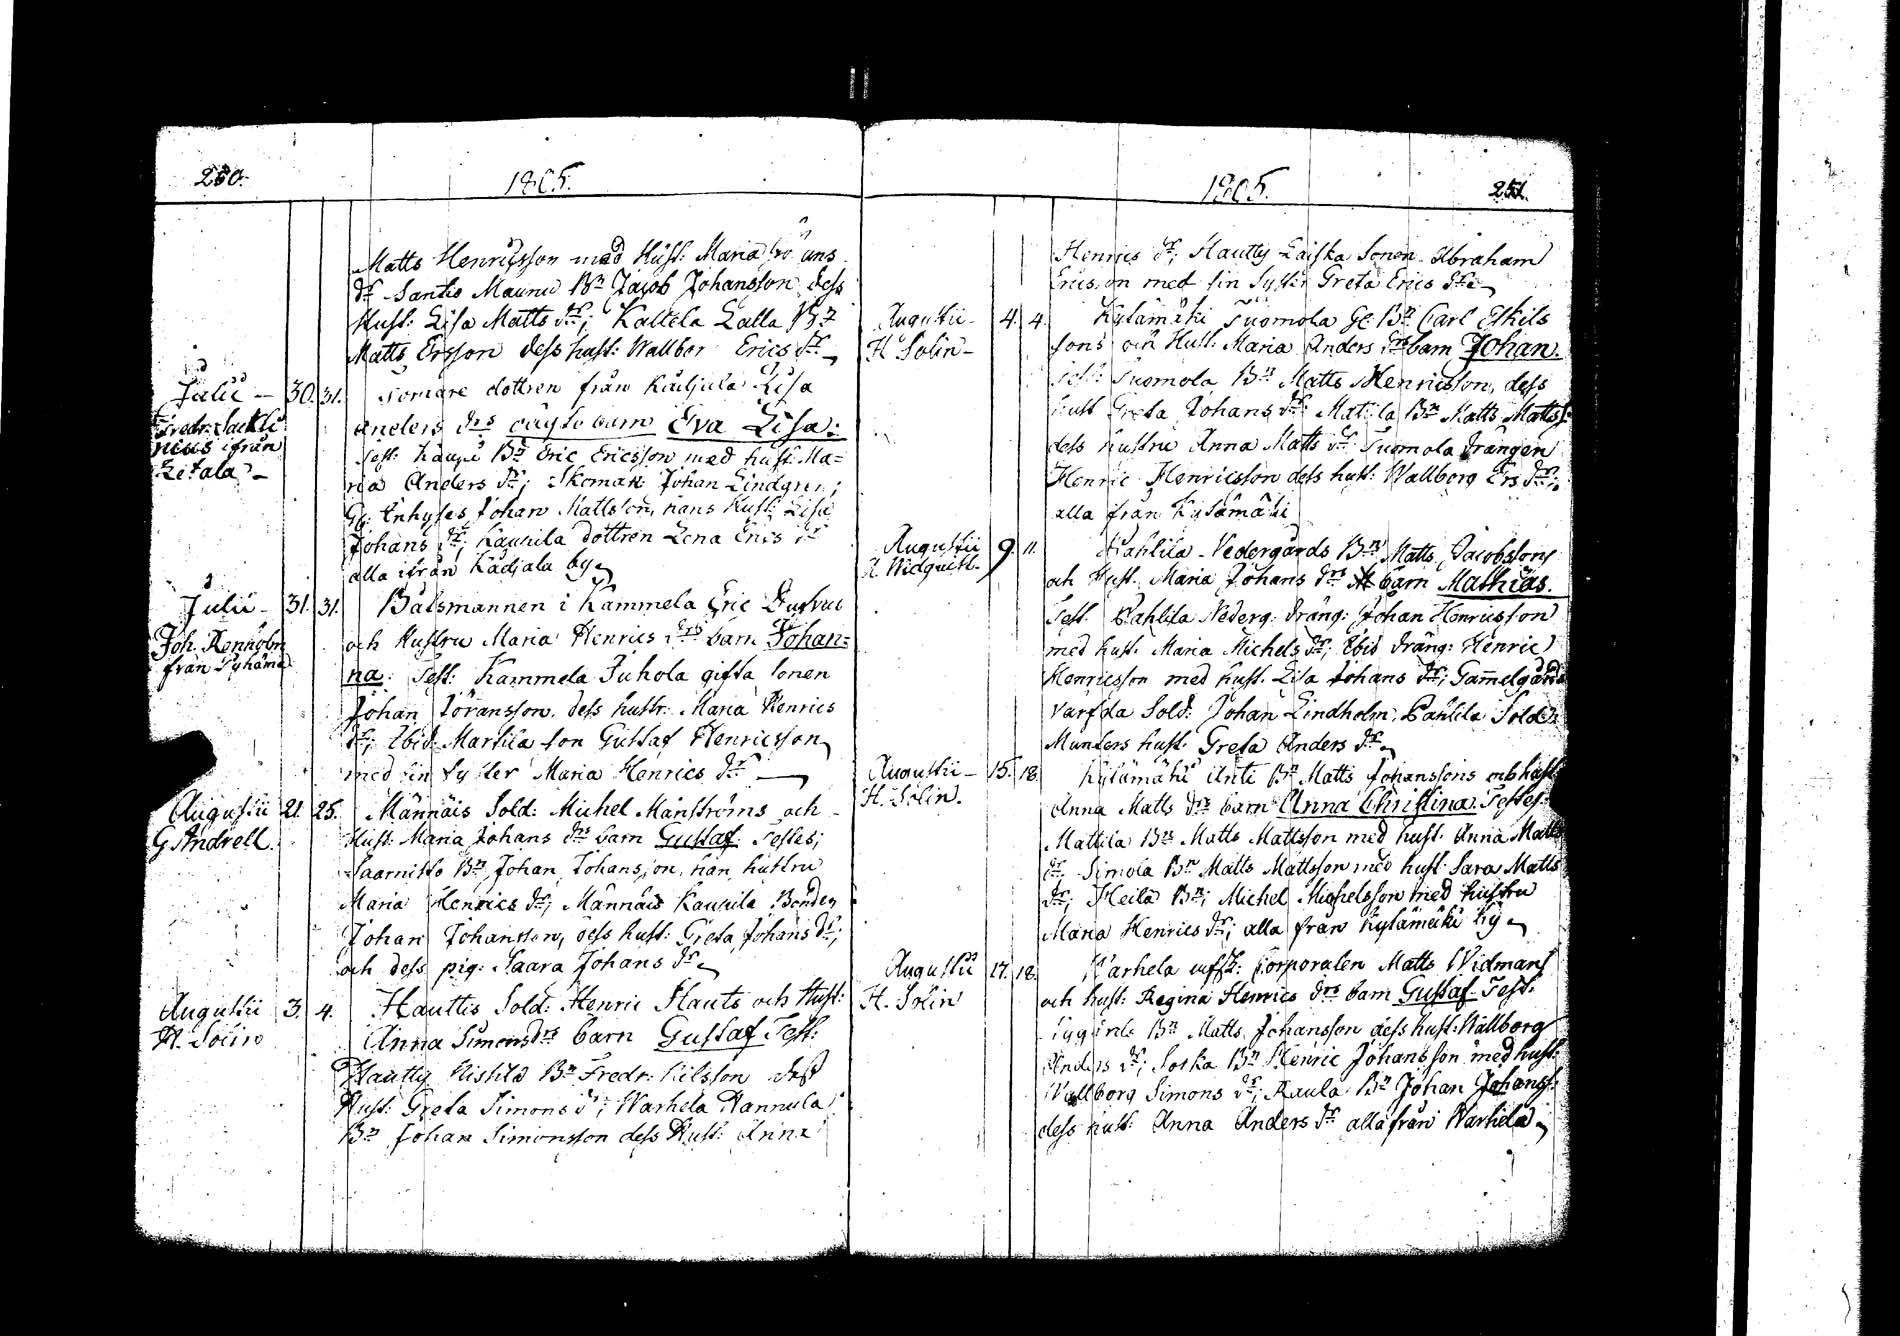 250.
1805.
Matts Henricsson med Hust: Maria
dr Santio Maunu Bn Jacob Johansson dess
Hust: Lisa Matts dr; Kaltela Lalla Bn
Matts Ersson dess hust: Wallbor Erics dr
Julii — 30. 31.
Fredr: Sackli
nius ifrån
Letala
Somare dottren från Kädjala Lisa
Anders drs oägta barn Eva Lisa:
Test: Kaupi Bn Eric Ericsson med hust: Ma=
ria Anders dr; Skomak: Johan Lindgren;
Gl: Inhyses Johan Mattsson, hans Hust: Lisa
Johans dr; Kaunila dottren Lena Erics dr
alla ifrån Kädjala by
Julii — 31. 31.
Joh. Renholm
från Pyhäma
Båtsmannen i Kammela Eric
och Hustru Maria Henrics drs barn Johan=
na: Test: Kammela Juhola gifta sonen
Johan Jöransson, dess hustr: Maria Henrics
dr; Ibid: Markila son Gustaf Henricsson
med sin syster Maria Henrics dr —
Augustii 21. 25.
G Andrell.
Männäis Sold: Michel Manströms och
Hust: Maria Johans drs barn Gustaf: Testes;
Saarnisto Bn Johan Johansson, han hustru
Maria Henrics dr; Männäis Kaukila Bonden
Johan Johansson, dess hust: Greta Johans dr;
och dess pig: Saara Johans dr
Augustii 3. 4.
H. Solin
Hauttis Sold: Henric Hauts och Hust:
Anna Simons drs barn Gustaf Test:
Hautty Bn Fredr: Nilsson dess
Hust: Greta Simons dr; Warhela Hannula
Bn Johan Simonsson dess Hust: Anna
1805.
251.
Henrics dr; Hautty Laiska Sonen Abraham
Ericsson med sin Syster Greta Erics dr
Augustii — 4. 4.
H Solin —
Kylämäki Tuomola Gl Bn Carl Eskils
sons och Hust: Maria Anders drs barn Johan.
Test: Tuomola Bn Matts Henricsson, dess
hust Greta Johans dr Mattila Bn Matts Mattss:
dess hustru Anna Matts dr Tuomola drängen
Henric Henricsson dess hust: Wallborg Ers dr;
alla från Kylämäki
Augustii 9. 11.
A Widquist.
Pahlila Nedergårds Bn Matts Jacobssons
och Hust: Maria Johans drs barn Mathias.
Test. Pahlila Nederg: dräng: Johan Henricsson
med hust: Maria Michels dr; Ibid dräng: Henric
Henricsson med hust. Lisa Johans dr; Gammelgårds
Varfda Sold: Johan Lindholm, Pahlila Sold:
Munters hust: Greta Anders dr
Augustii — 15. 18.
H. Solin.
Kylämäki Anti Bn Matts Johanssons och hust:
Anna Matts drs barn Anna Christina. Testes:
Mattila Bn Matts Mattsson med hust. Anna Matts
dr Simola Bn Matts Mattsson med hust Sara Matts
dr; Heila Bn; Michel Michelsson med hustru
Maria Henrics dr; alla från Kylämäki by
Augustii 17. 18.
H. Solin
Warhela Corporalen Matts Widmans
och hust: Regina Henrics drs barn Gustaf Test:
Bn Matts Johansson dess hust: Wallborg
Anders dr; Soika Bn Henric Johansson med hust:
Wallborg Simons dr; Raula Bn Johan Johanss:
dess hust: Anna Anders dr alla från Warhela